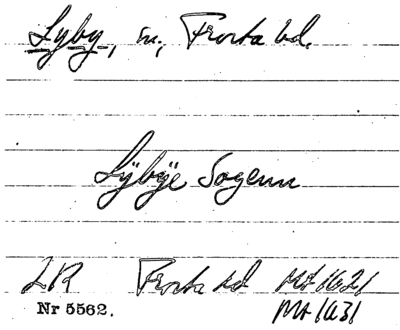 Lyby, sn, Frosta hd.
Lÿbÿe Sogenn
LR Frosta hd MA 1621
Nr 5562. MA 1631